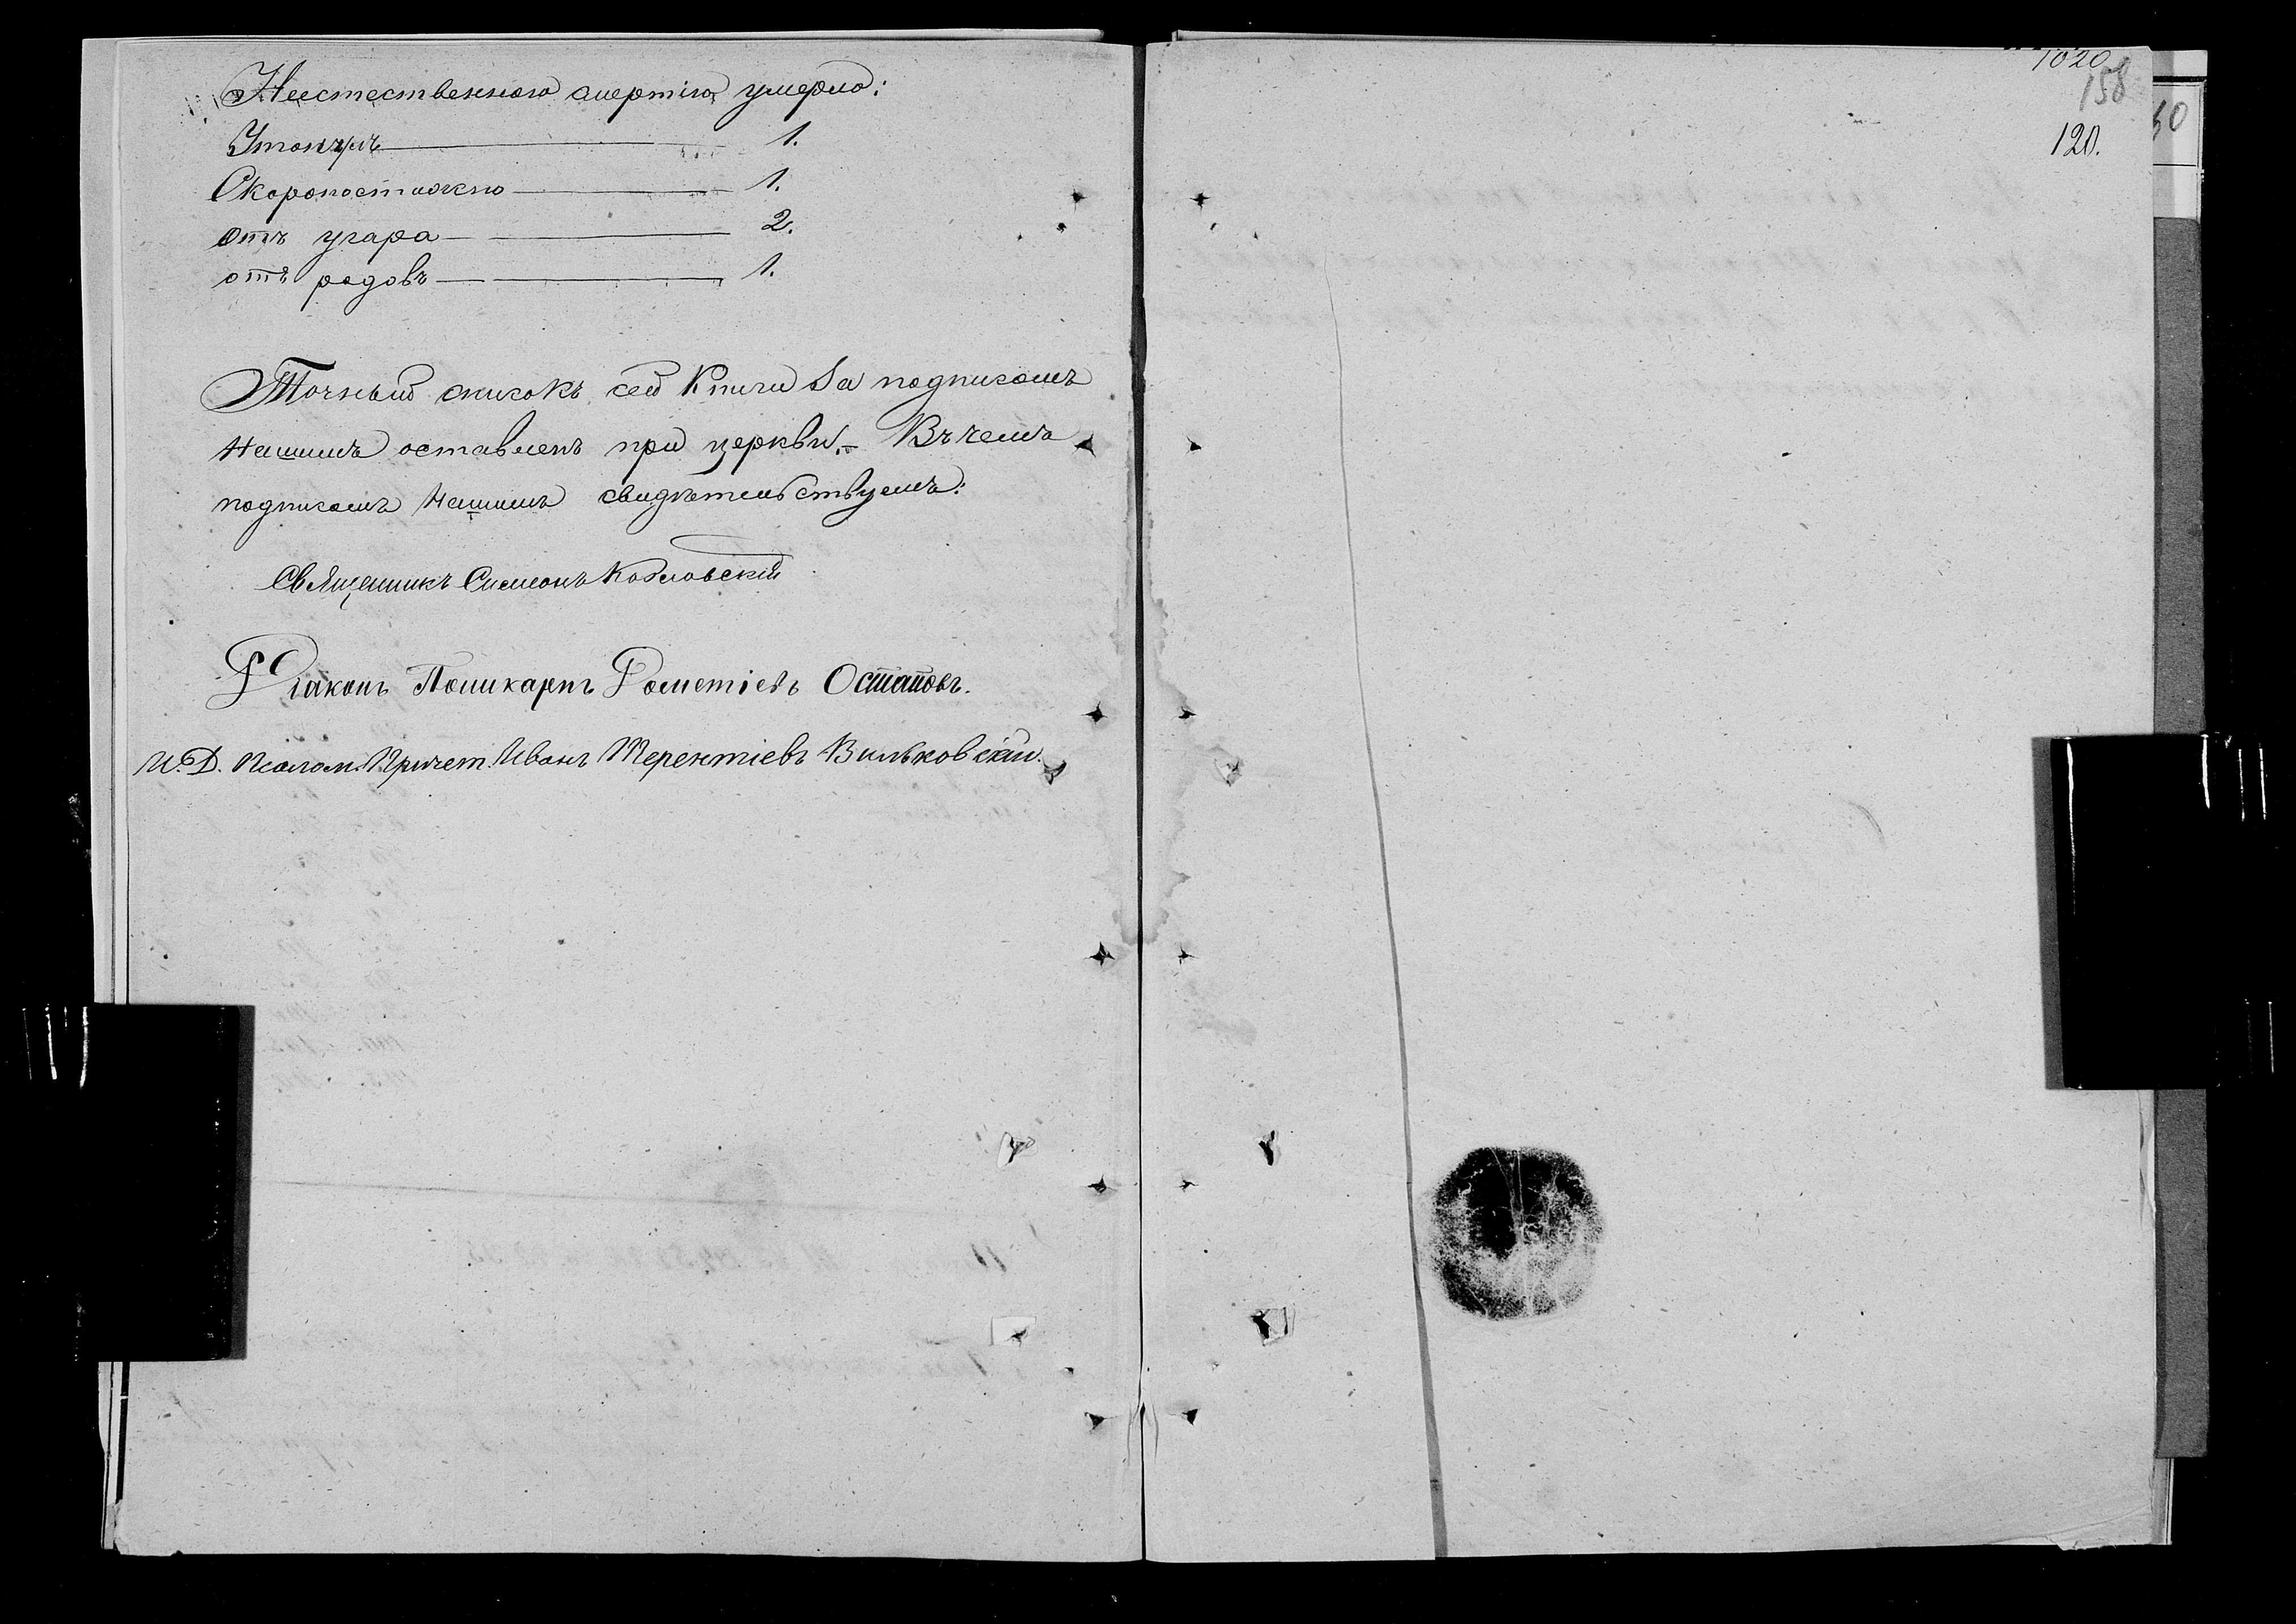 Неестественною смертію умерло:
Утонулъ — 1.
Скоропостижно — 1.
Отъ угара — 2.
отъ родовъ — 1.
Точный списокъ сей Книги за подписомъ
Нашимъ оставленъ при церкви. – Въ чемъ
подписомъ Нашимъ свидѣтельствуемъ:
Священникъ Симеонъ Козловскій
Діаконъ Поликарпъ Остаповъ.
И. Д. Псалом. Причет. Иванъ Терентіевъ Вильковскій.
1020
158
120.